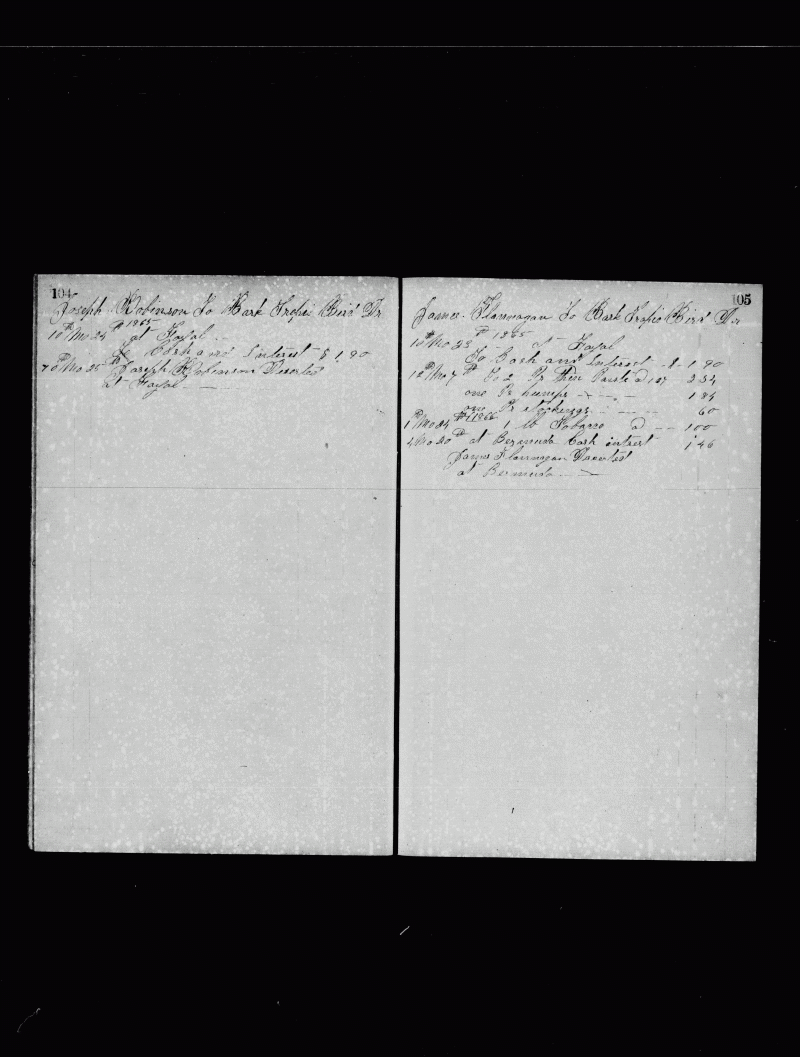 104
Joseph Robinson To Bark Tropic Bird Dr
10th Mo 24th 1865 at Fayal
To Cash and Interest $ 1.90
Mo 25 Joseph Robinson Deserted
at Fayal
105
James Flannagan To Bark Tropic Bird Dr
10th Mo 23th 1865 at Fayal
To Cash and Interest $ 1 90
12th Mo 7th To 2 Pr Thin Pants a 1 27 2 54
one Pr pumps 1 84
one Pr stockings 60
1th Mo 24th 1866 1 lb Tobacco a 1 00
4 Mo 20th at Bermuda Cash intrest 1 46
James Flannagan Deserted
at Bermuda